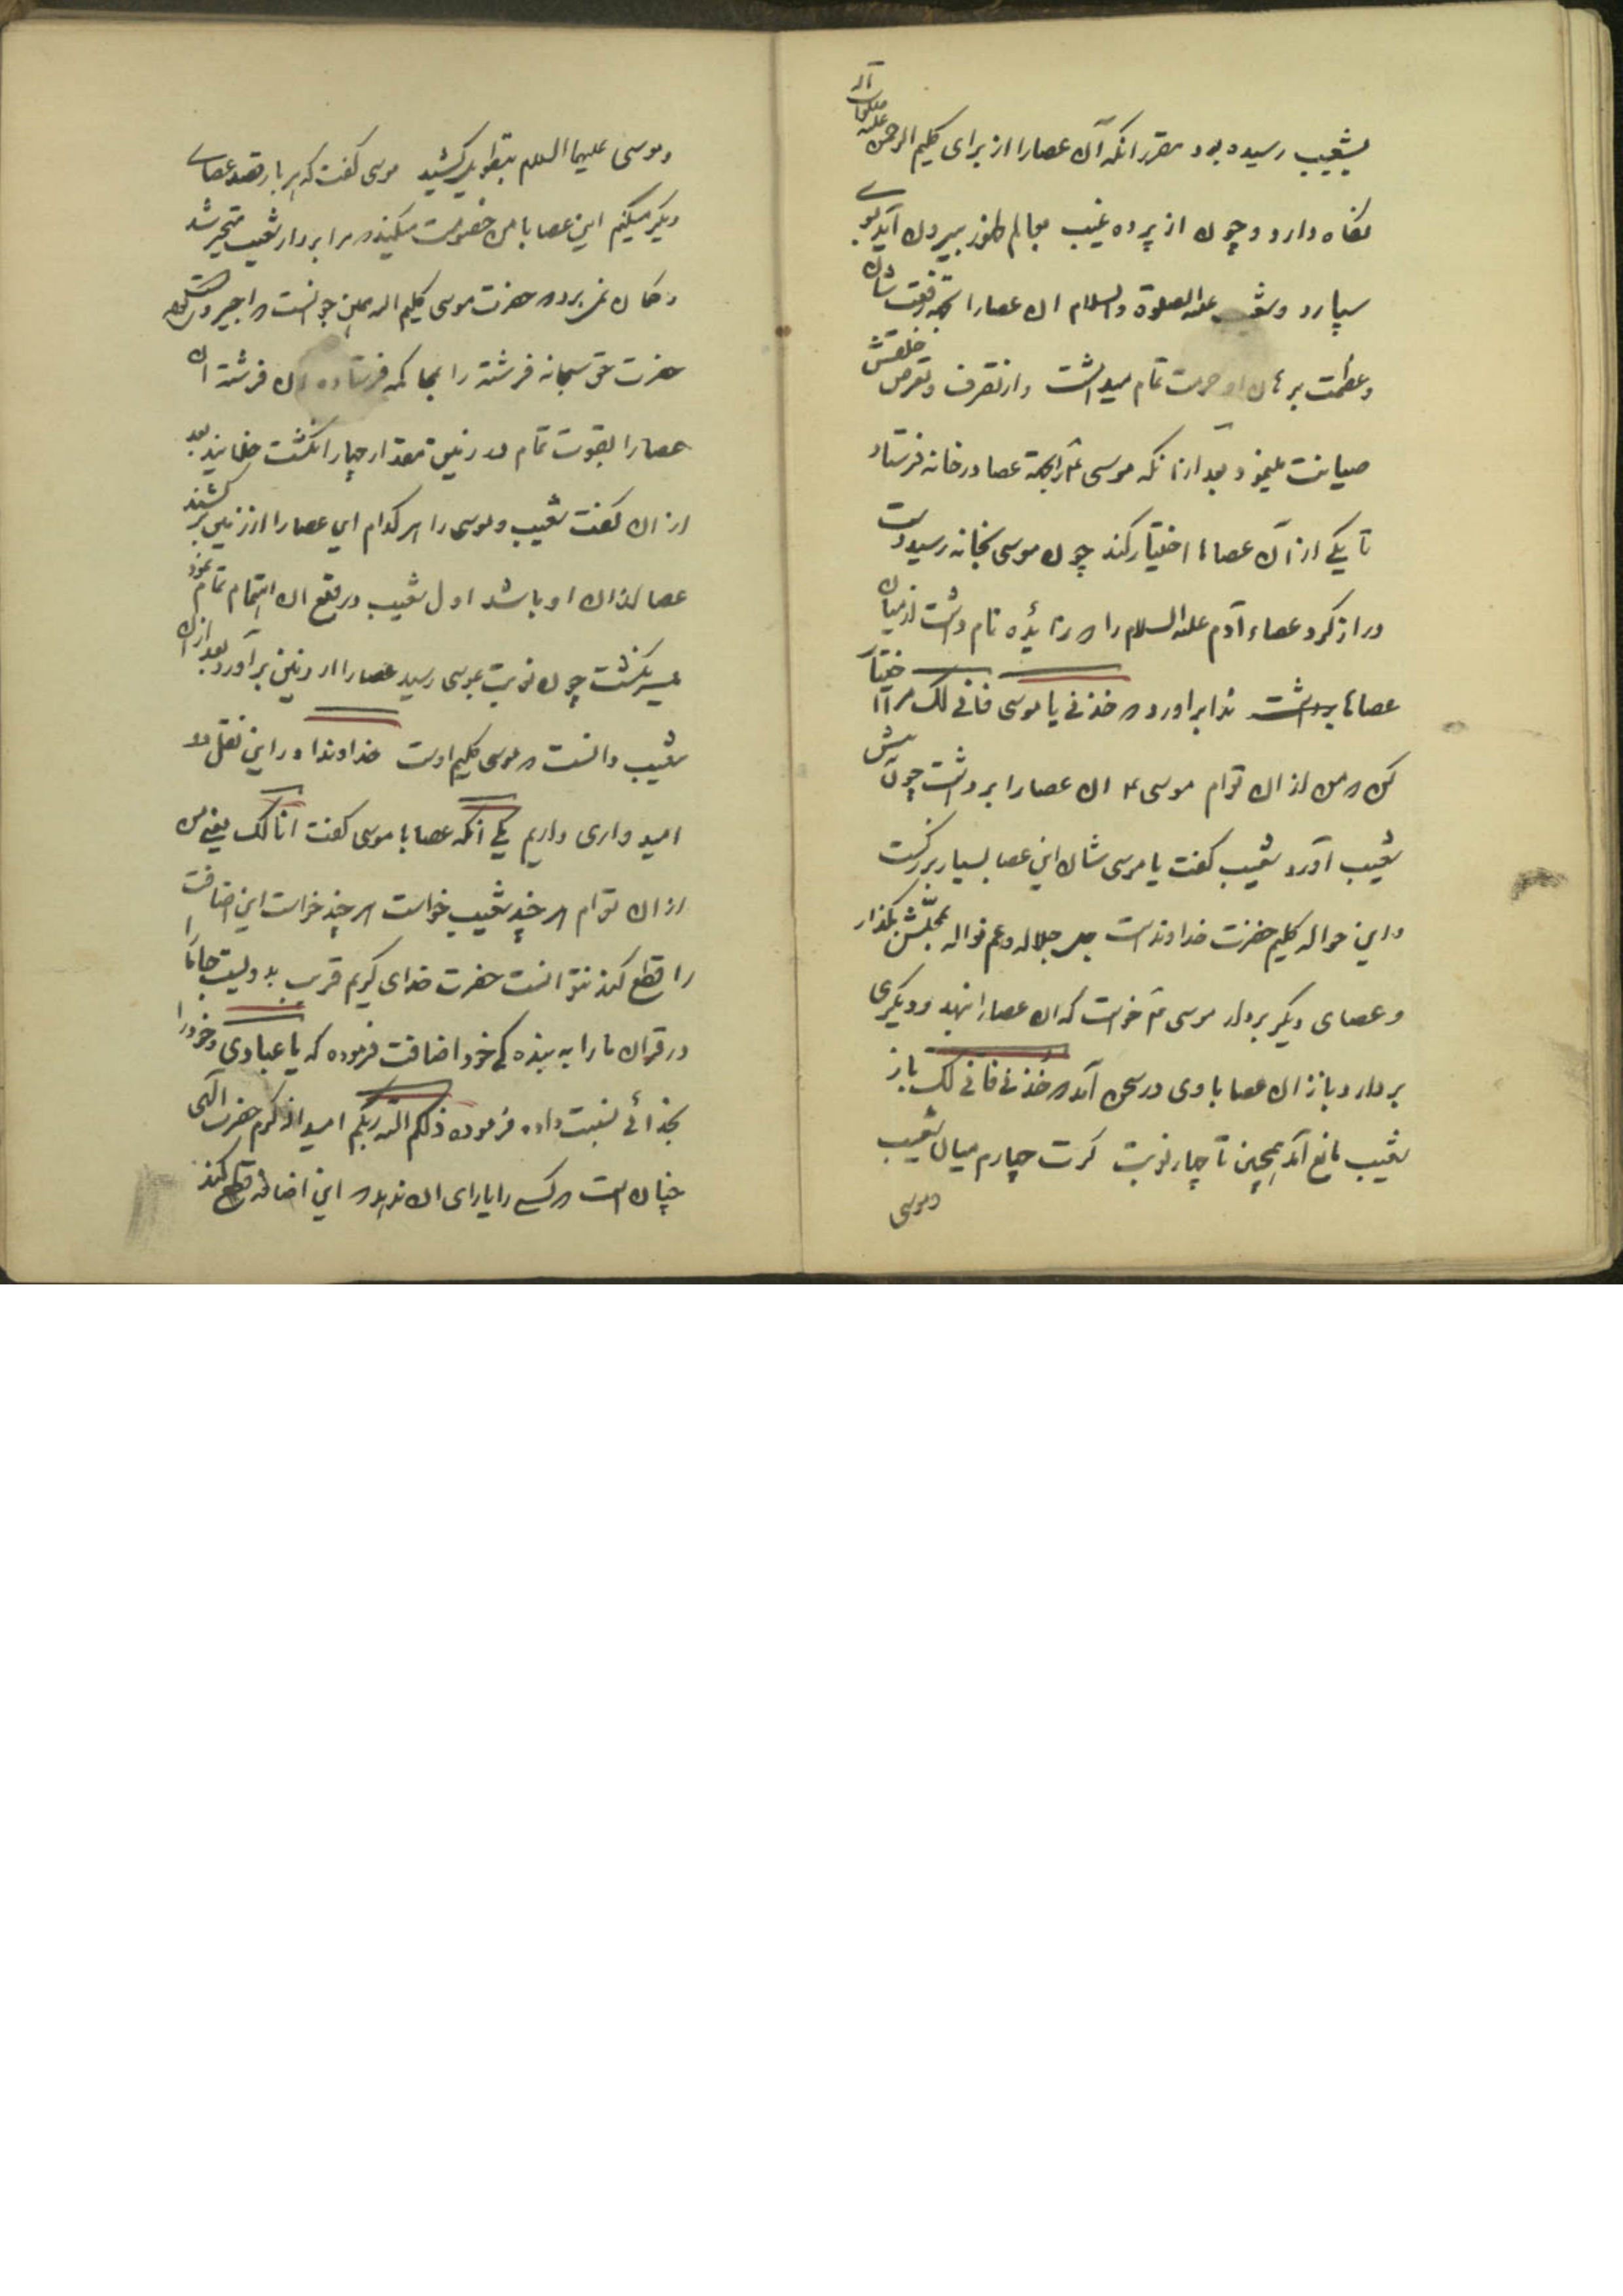 بشعیب رسیده بود مقرر انکه آن عصا را از برای کلیم الرحمن علیه صلوات الله
نگاه دارد و چون از پرده غیب بعالم ظهور بیرون آید بوی
سپارد و شعیب علیه الصلوة والسلام ان عصا را بجهة رفعت شان
و عظمت برهان او حرمت تمام میداشت و از تصرف و تعرض خلقتش
صیانت مینمود بعد ازانکه موسی را بجهة عصا در خانه فرستاد
تا یکی از آن عصاها اختیار کند چون موسی بخانه رسید دست
دراز کرد عصاء آدم علیه السلام را که نام داشت از میان
عصاها برداشت ندا براورد که خذنی یا موسی فانی لک مرا اختیار
کن که من از ان توام موسی ان عصا را برداشت چون پیش
شعیب آورد شعیب گفت یا موسی شان این عصا بسیار بزرکست
و این حواله کلیم حضرت خداوندست جل جلاله و عم نواله بمحلش بگذار
و عصای دیگر بردار موسی خواست که ان عصا را نهد و دیگری
بردارد باز ان عصا با وی در سخن آمد که خذنی فانی لک باز
شعیب مانع آمد همچنین تا چهار نوبت کرت چهارم میان شعیب
وموسی
وموسی علیهما السلام بتطویل کشید موسی گفت که هر بار قصد عصای
دیگر میکنم این عصا با من خصومت میکند که مرا بردار شعیب متحیر شد
و گمان نمی برد که حضرت موسی کلیم الله همین جوانست که اجیر
حضرت حق سبحانه فرشته را بمحاکمه فرستاده ان فرشته ان
عصا را بقوت تمام در زمین مقدار چهار انگشت خلانید بعد
از ان گفت شعیب و موسی را هر کدام این عصا را از زمین برکشند
عصا از ان او باشد اول شعیب در قلع ان اهتمام تمام نمود
میسر نگشت چون نوبت بموسی رسید عصا را از زمین برآورد بعد ازان
شعیب دانست که موسی کلیم اوست خداوندا در این نقل دو
امیدواری داریم یکی آنکه عصا با موسی گفت انا لک یعنی من
از ان توام هر چند شعیب خواست هر چند خواست این اضافت
را قطع کند نتوانست حضرت خدای کریم قرب بدویست جا ما را
در قران ما را به بنده کی خود اضافت فرموده که یا عبادی و خود را
بخدائی نسبت داده فرموده ذلکم الله ربکم امید از کرم حضرت الهی
چنان است که کسی را یارای ان ندهد که این اضافه قطع کند